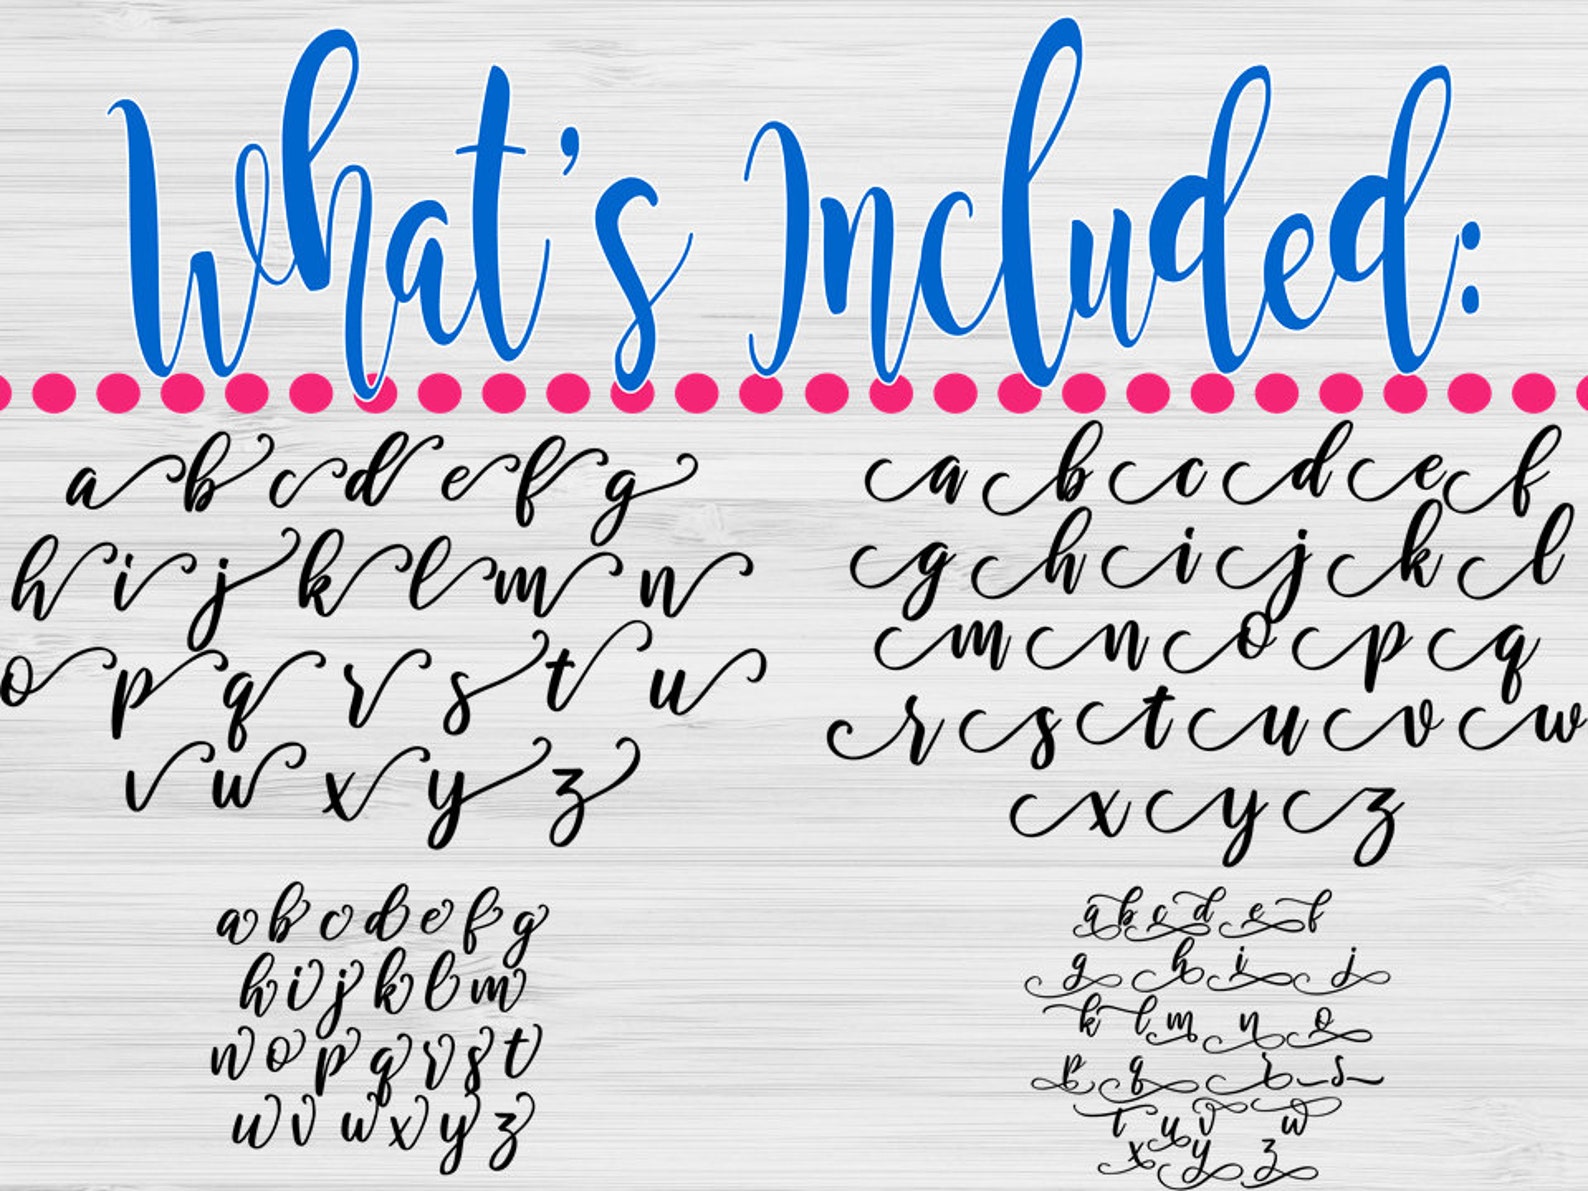 What's Included:
a b c d e f g
h i j k l m n
o p q r s t u
v w x y z
a b c d e f
g h i j k l
m n o p q
r s t u v w
x y z
a b c d e f g
h i j k l m
n o p q r s t
u v w x y z
a b c d e f
g h i j
k l m n o
p q r s
t u v w
x y z